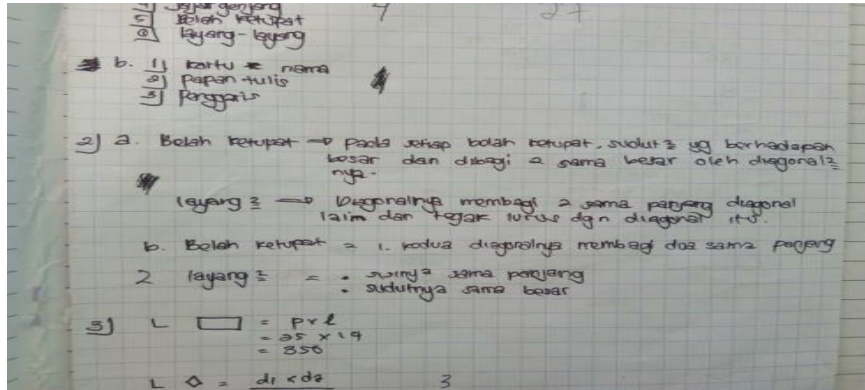 4) Jajar genjang
5) Belah ketupat
6) layang-layang
b. 1) kartu nama
2) papan tulis
3) Penggaris
2) a. Belah ketupat → pada setiap bolah ketupat, sudut2 yg berhadapan
besar dan dibagi 2 sama besar oleh diagonal2
nya.
layang2 → Diagonalnya membagi 2 sama panjang diagonal
laim dan tegak lurus dgn diagonal itu.
b. Belah ketupat = 1. kedua diagonalnya membagi doa sama panjang
2 layang2 = • sisinya sama panjang
• sudutnya sama besar
3) L = p x l
= 25 x 14
= 350
L = d1 x d2
3